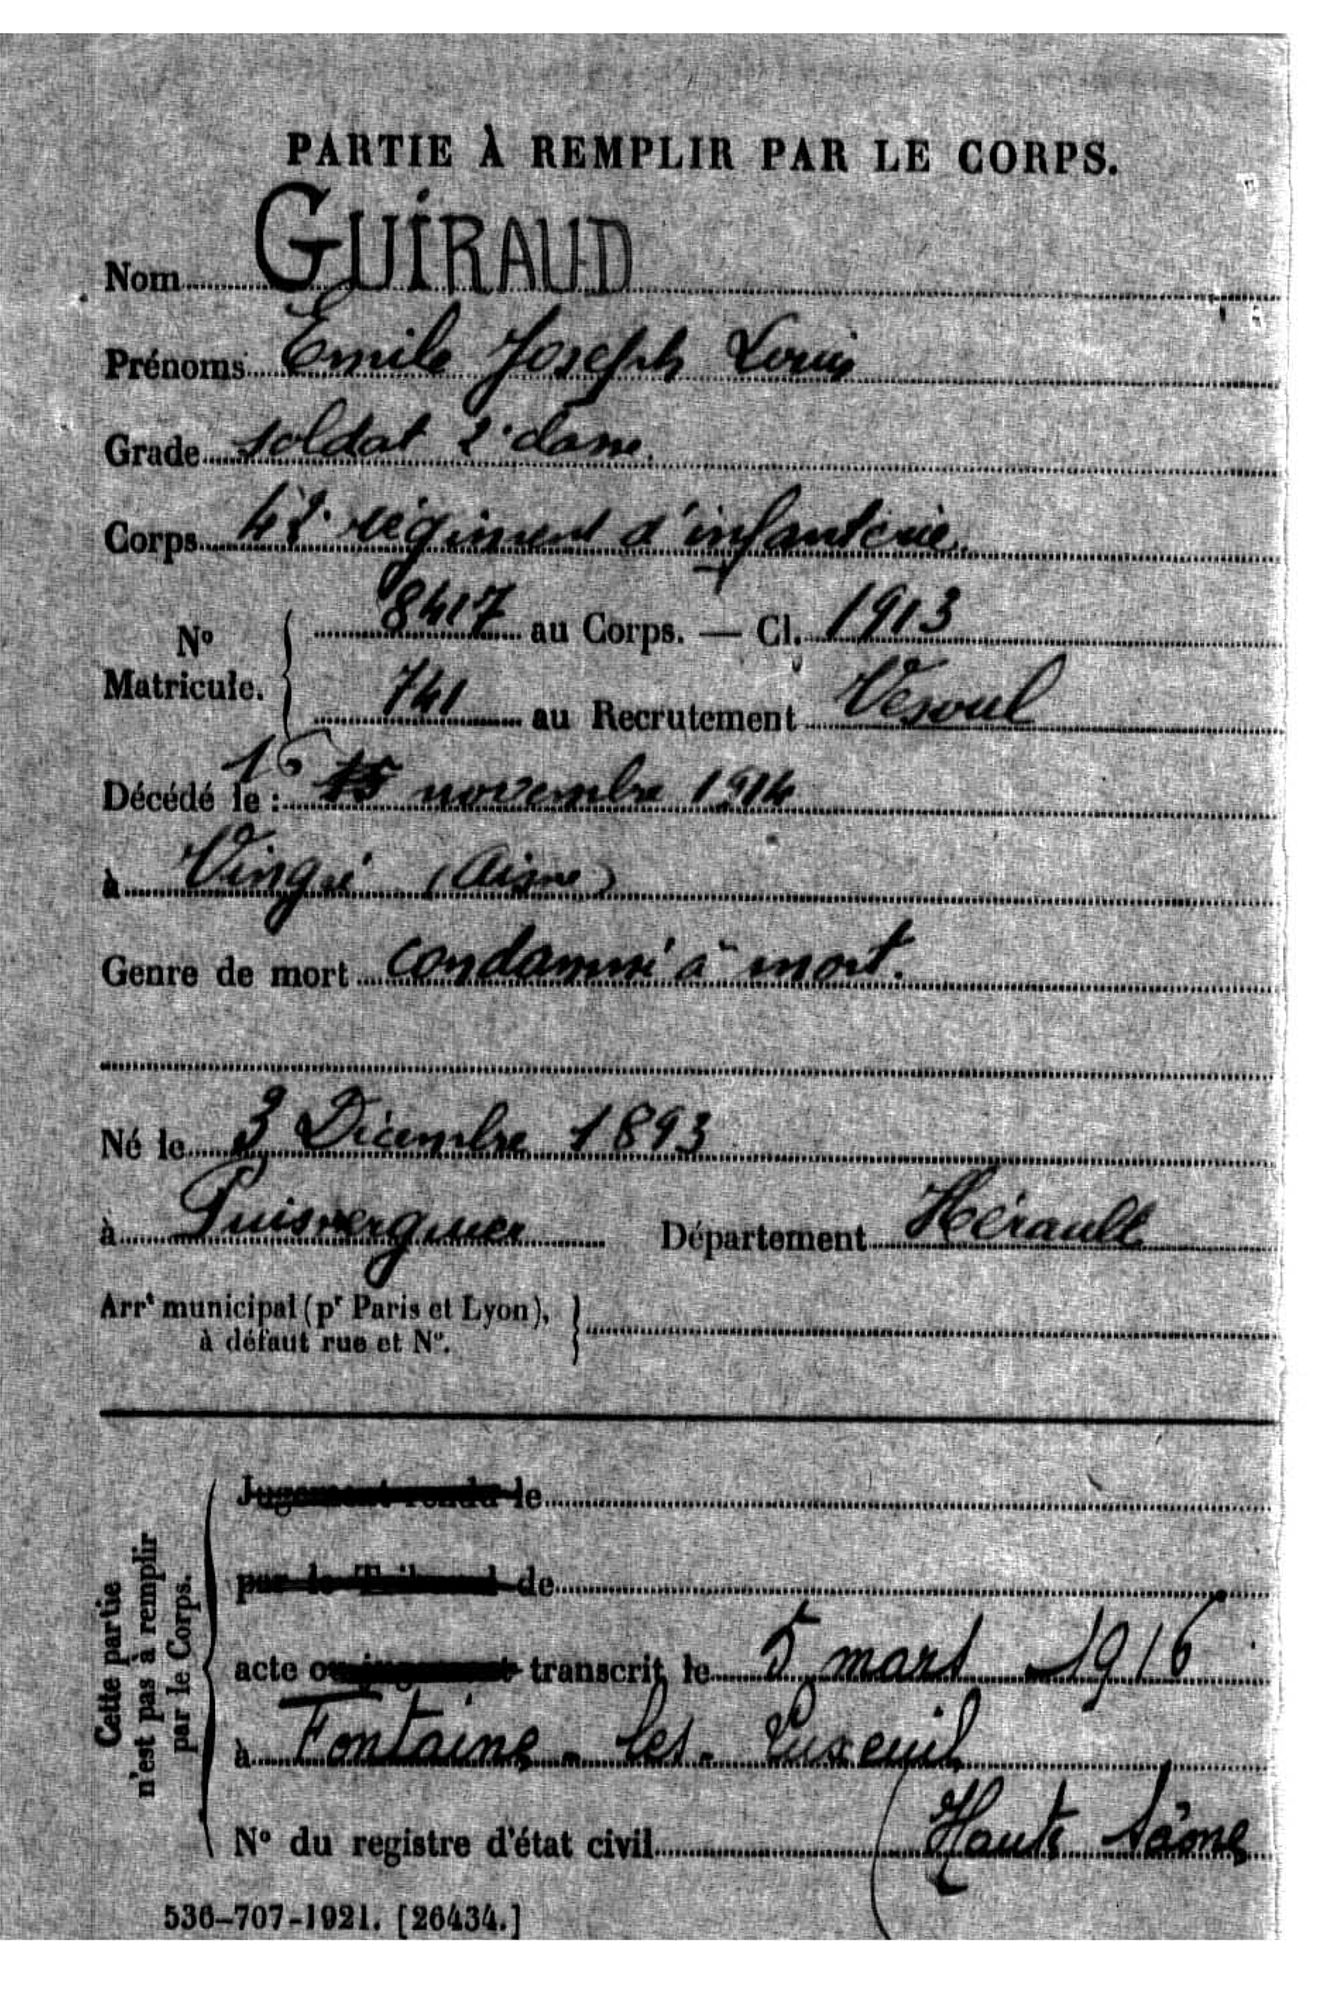 PARTIE À REMPLIR PAR LE CORPS.
Nom GUIRAUD
Prénoms Emile Joseph Louis
Grade soldat 2e classe
Corps 42e régiment d'infanterie.
No Matricule. { 8417 au Corps. — Cl. 1913
741 au Recrutement Vesoul
Décédé le : 16 15 novembre 1914
à Vingré (Aisne)
Genre de mort condamné à mort.
Né le 3 Décembre 1893
à Puisserguier Département Hérault
Arrt municipal (pr Paris et Lyon),
à défaut rue et No.
Cette partie
n'est pas à remplir
par le Corps.
Jugement rendu le
par le Tribunal de
acte ou jugement transcrit le 5 mars 1916
à Fontaine-les-Luxeuil
No du registre d'état civil (Haute Saône
536-707-1921. [26434.]